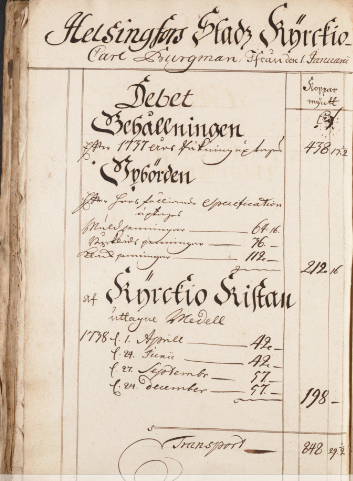 Helsingfors Stads Kyrckio-
Carl Burgman, Ifrån den 1. Januarii
Koppar
mÿntt
Debet
Behållningen
Efter 1737 års Räkning 438 17 1/2
Upbörden
Efter hosfölliande Specification
Mulds penningar 64. 16.
penningar 76. –
penningar 112. –
212 16
af Kyrckio Kistan
uttagne Medell
1738 d. 1. Aprill 42. –
d. 24. Junii 42. –
d. 27. Septembr 57. –
d. 24. December 57. –
198 –
Transport 848 29 1/2